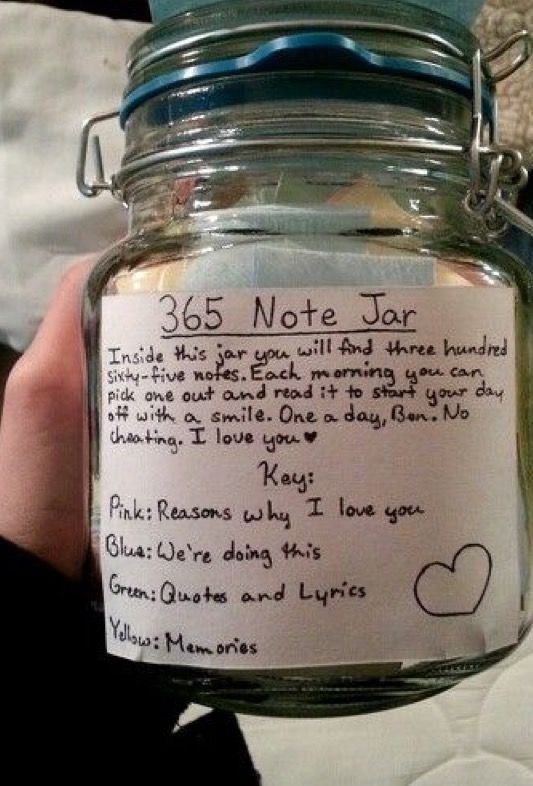 365 Note Jar
Inside this jar you will find three hundred
sixty-five notes. Each morning you can
pick one out and read it to start your day
off with a smile. One a day, Ben. No
cheating. I love you♥
Key:
Pink: Reasons why I love you
Blue: We're doing this
Green: Quotes and Lyrics
Yellow: Memories